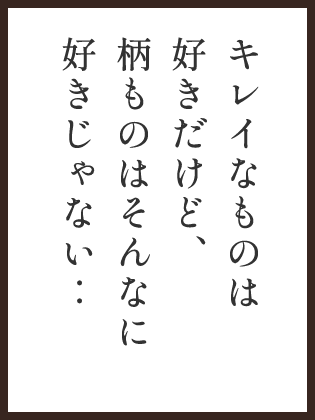 キレイなものは
好きだけど、
柄ものはそんなに
好きじゃない‥